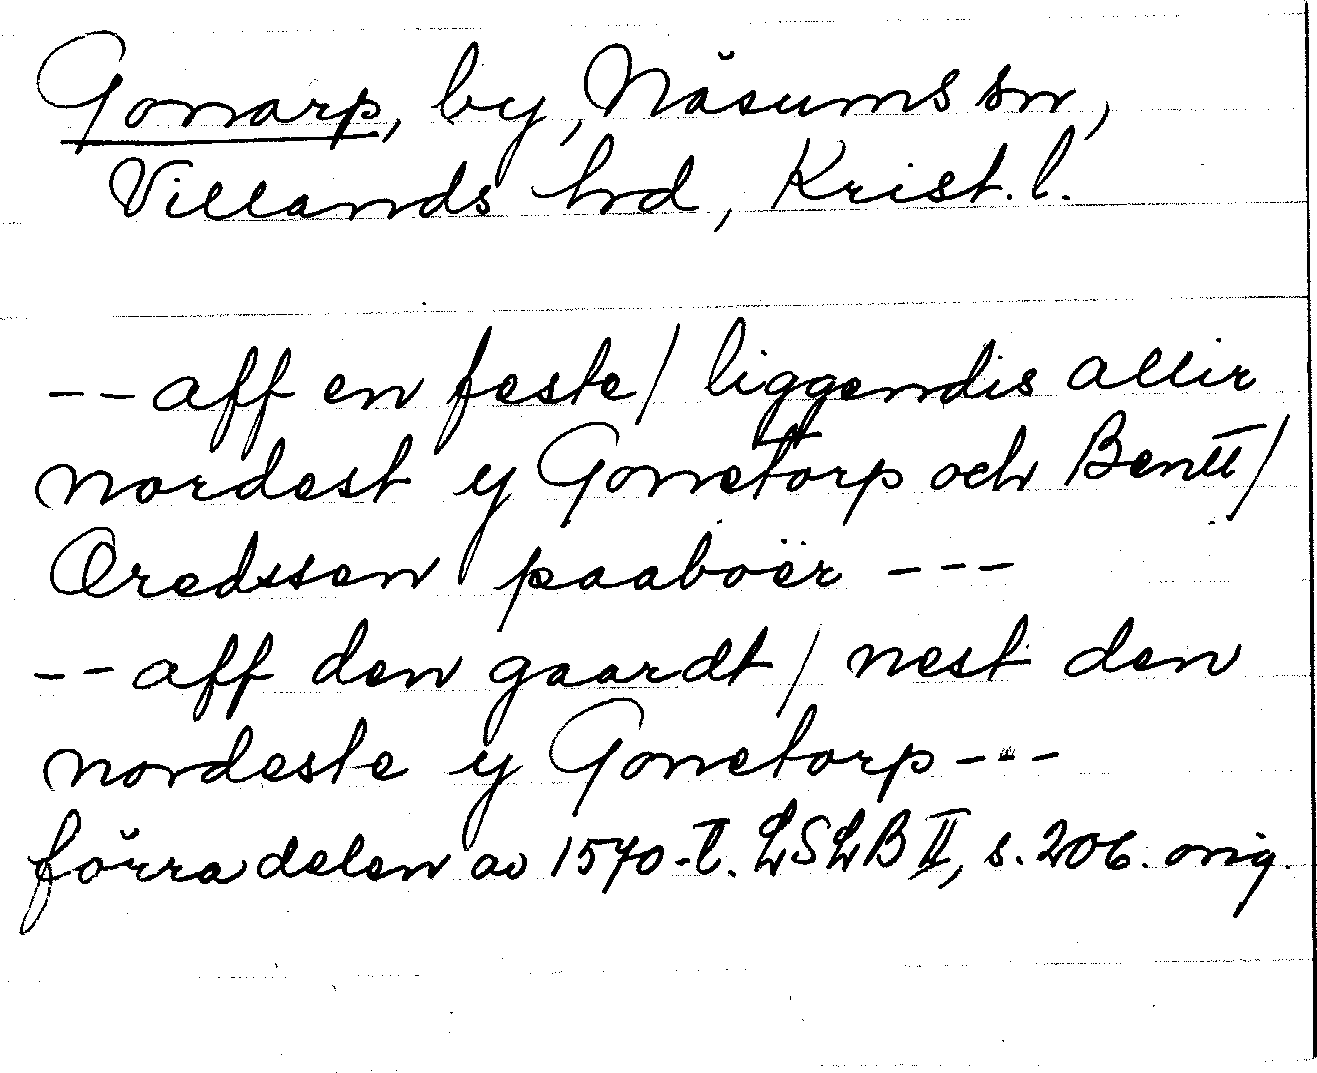 Gonarp, by, Näsums sn,
Villands hrd, Krist. l.
--aff en feste/ liggendis allir
nordest y Gonetorp och Bentt/
Øredssen paaboer ---
--aff den gaardt/ nest den
nordeste y Gonetorp---
förra delen av 1570-t. LSLB II, s. 206. orig.